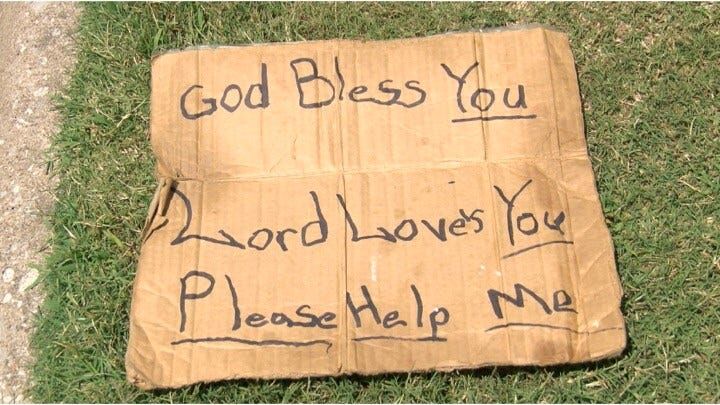 God Bless You
Lord Love's You
Please Help Me